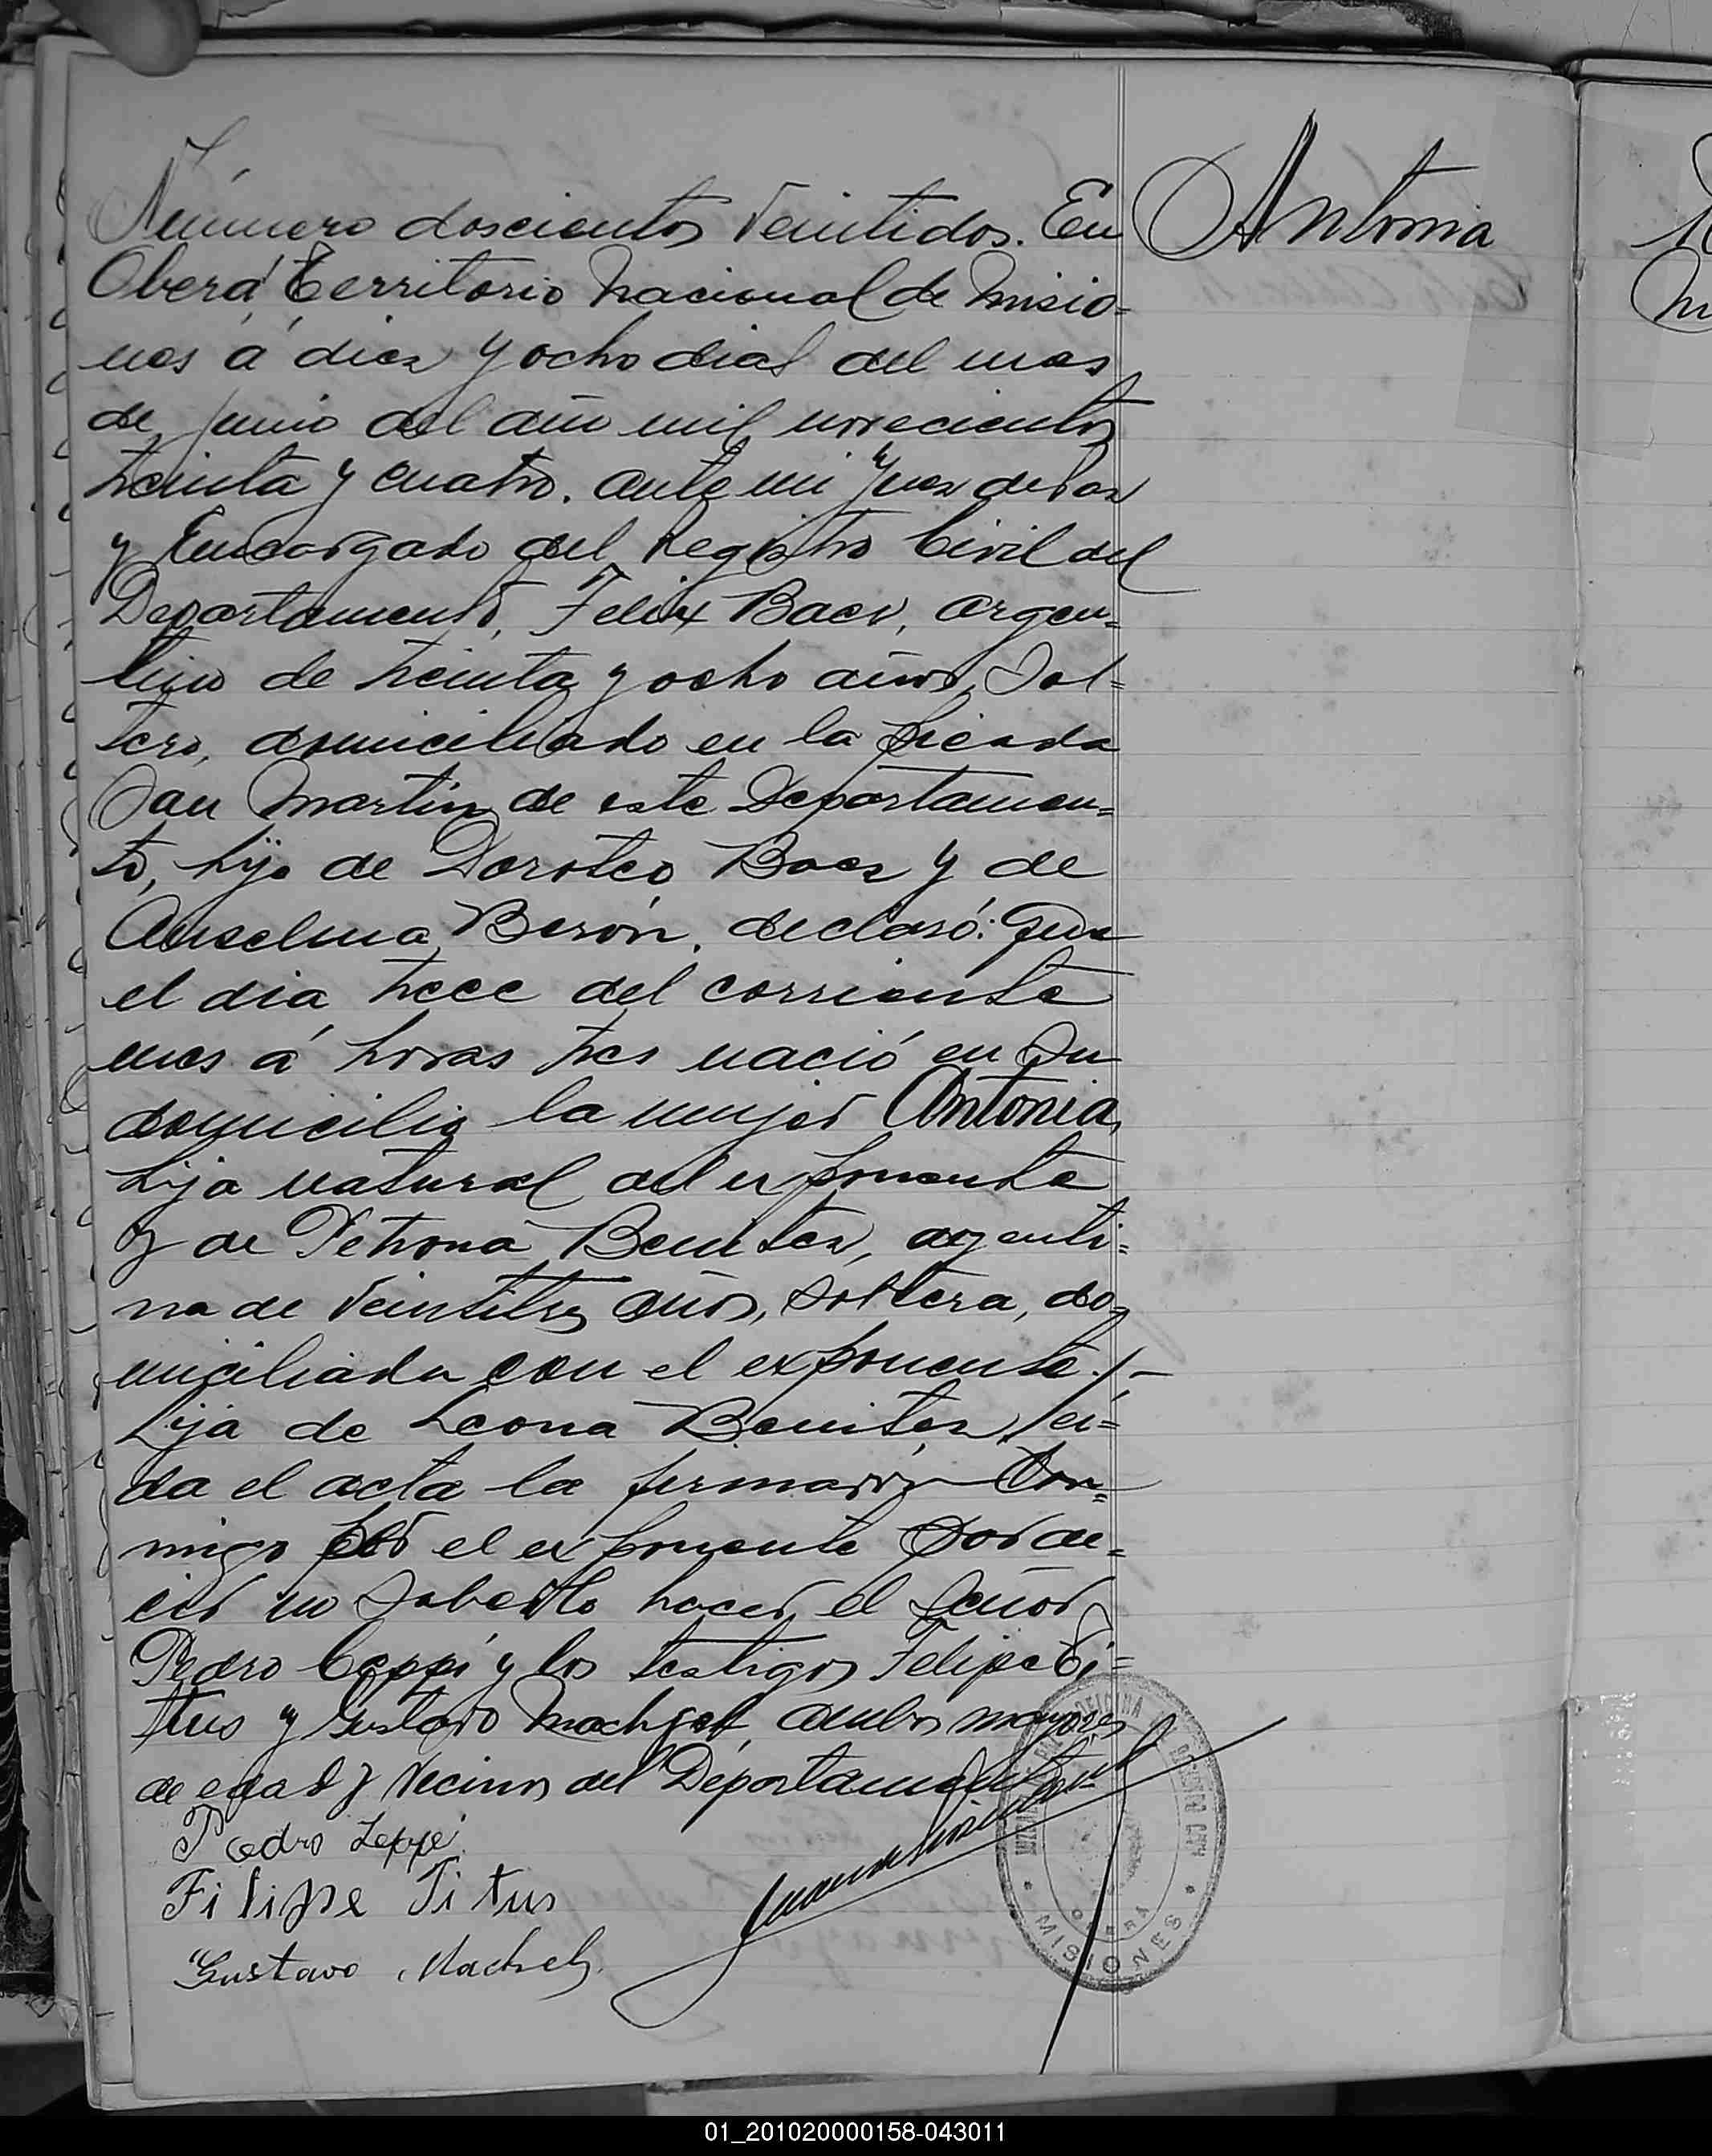 Antonia
Número doscientos veintidos. En
Oberá, Territorio Nacional de Misio=
nes á diez y ocho dias del mes
de junio del año mil novecientos
treinta y cuatro. ante mi Juez de Paz
y Encargado del Registro Civil del
Departamento, Felix Baez, argen=
tino de treinta y ocho años, Sol=
tero, domiciliado en la picada
San Martín de este Departamen=
to, hijo de Doroteo Baez y de
Anselma Berón, declaró: Que
el dia trece del corriente
mes á horas tres nació en su
domicilio la mujer Antonia,
hija natural del exponente
y de Petrona Benitez, argenti=
na de veintitres años, soltera, do=
miciliada con el exponente./-
hija de Leona Benitez, lei=
da el acta la firmaron con=
migo por el exponente por de=
cir no saberlo hacer el Señor
Pedro Ceppi y los testigos Felipe Ti=
tus y Gustavo Machjet, ambos mayores
de edad y vecinos del Departamento
Pedro Zeppi
Filipe Titus
Gustavo
OBERA
MISIONES
01_201020000158-043011